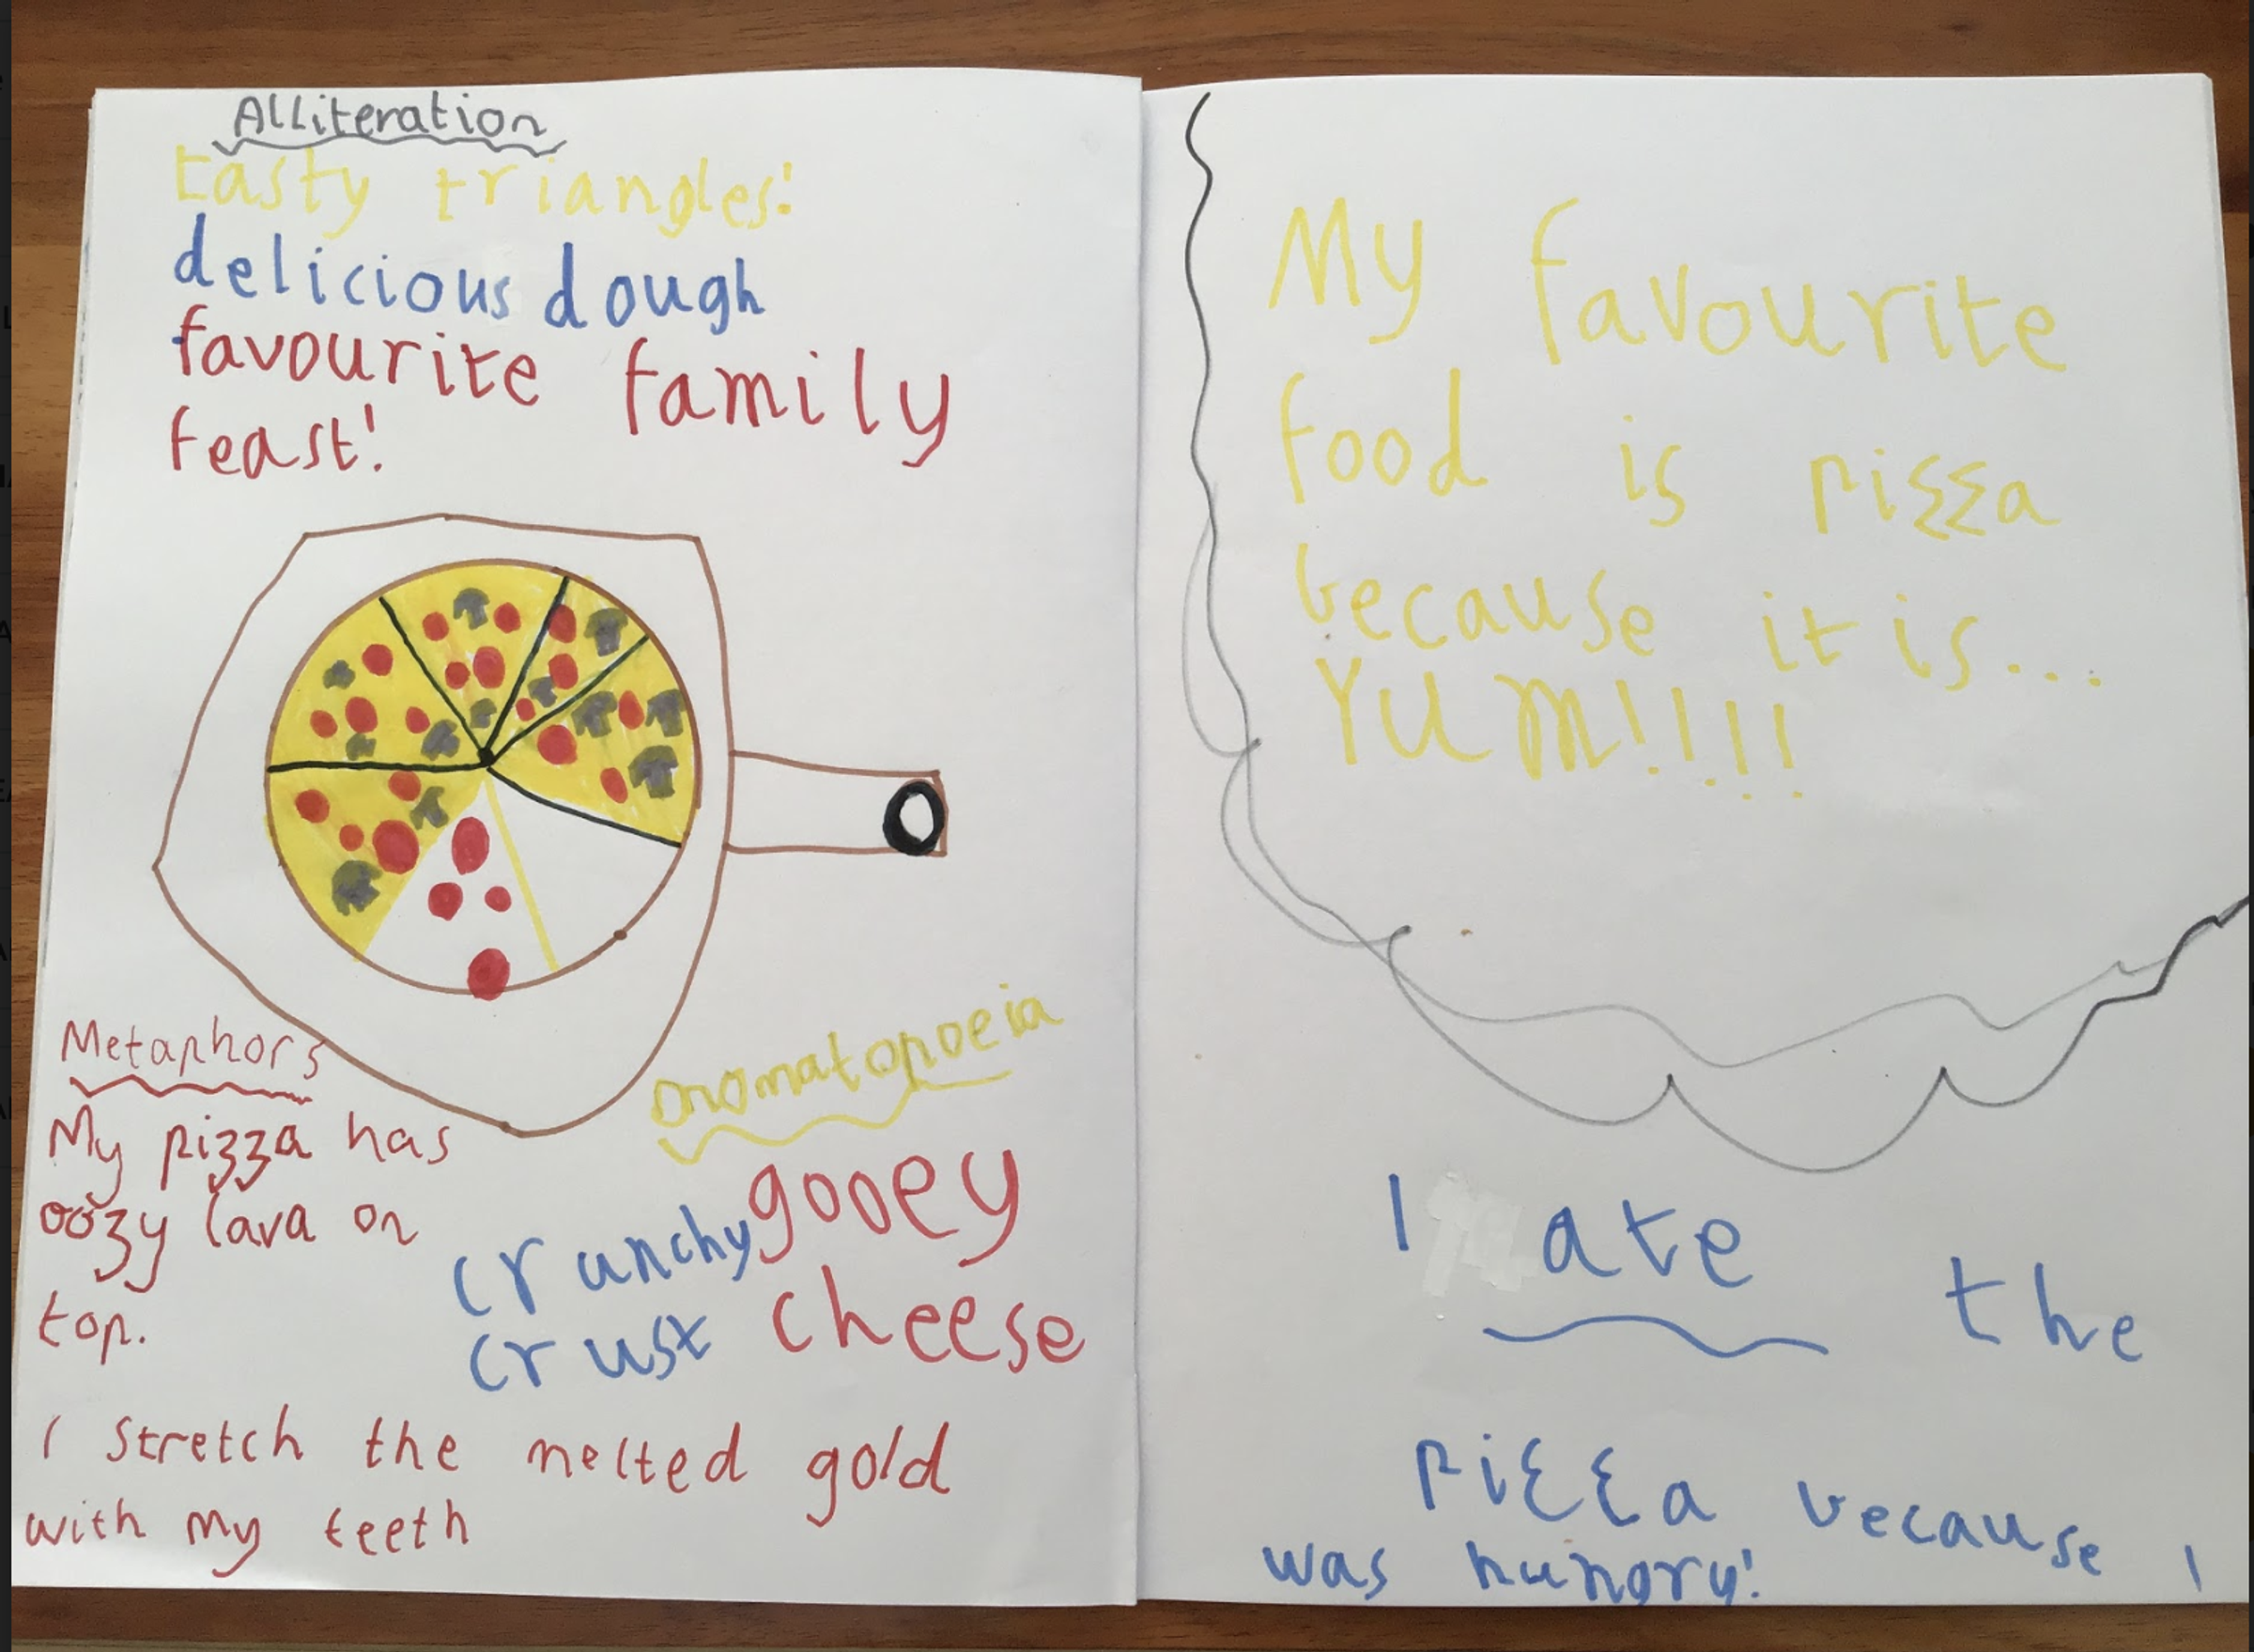 Alliteration
tasty triangles!
delicious dough
favourite family
feast!
Metaphors
My pizza has
oozy lava on
top.
I stretch the melted gold
with my teeth
onomatopoeia
crunchy
crust
gooey
cheese
My favourite
food is pizza
because it is...
YUM!!!!!
I ate the
pizza because I
was hungry!